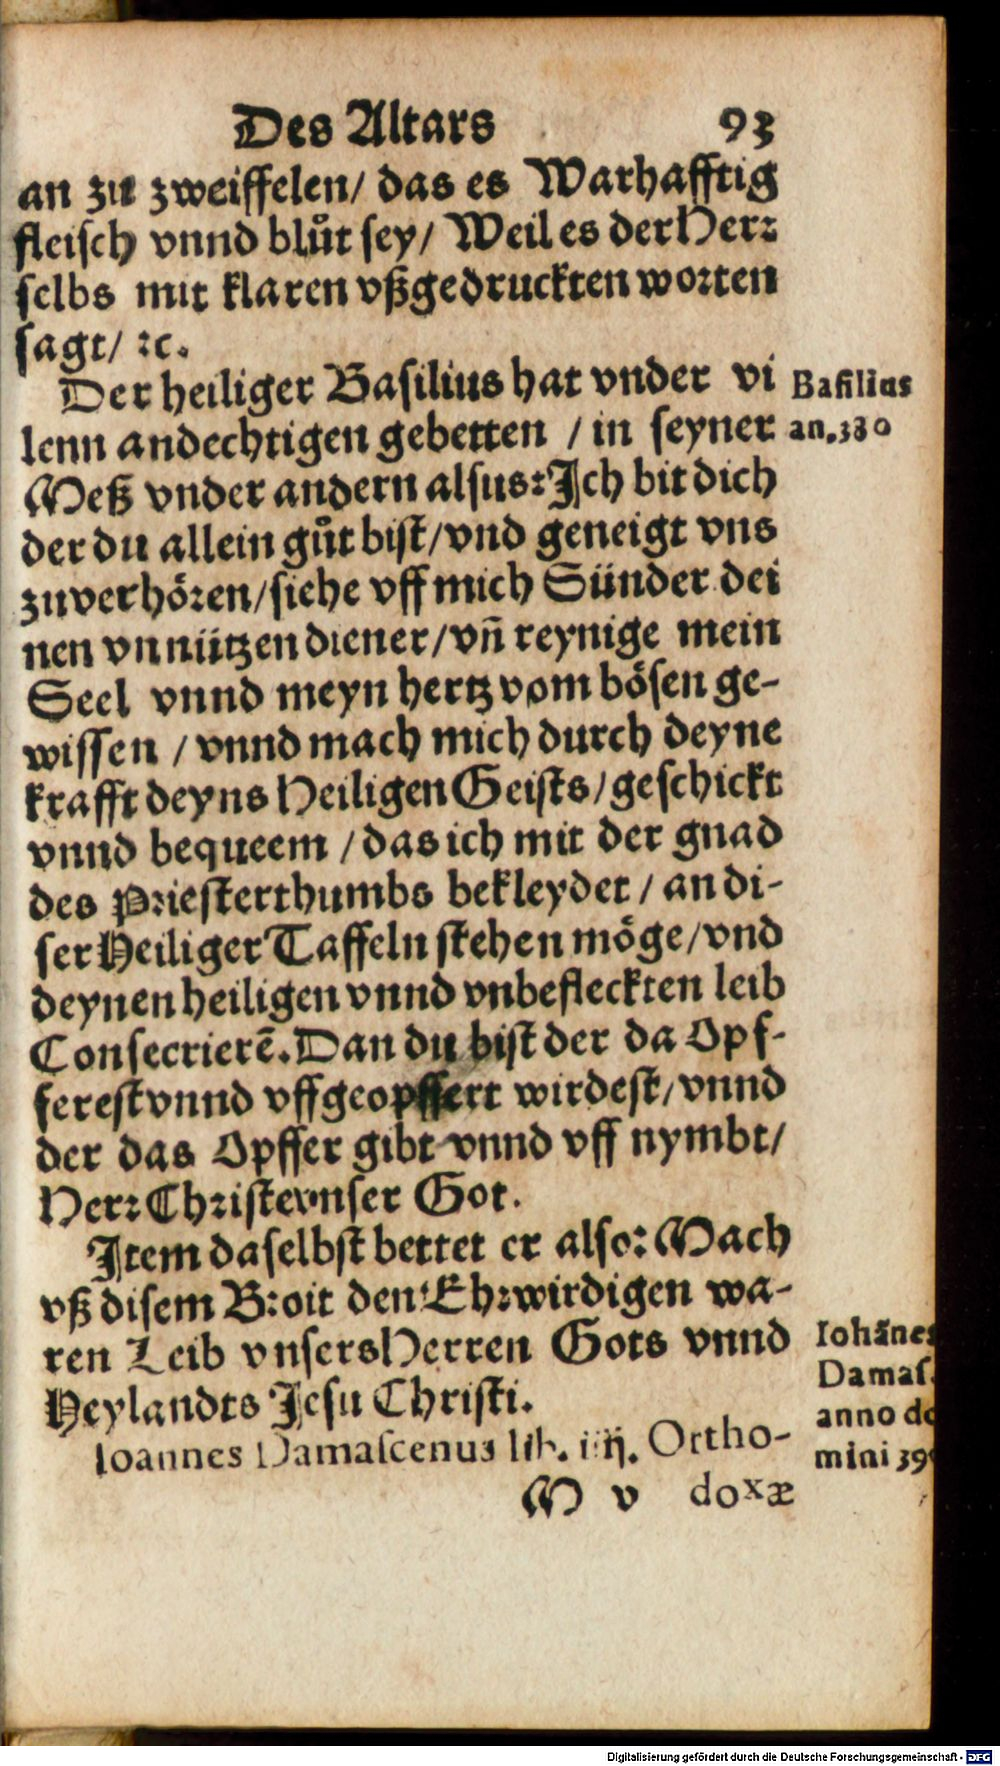 Des Altars 93
an zu zweiffelen/ das es Warhafftig
fleisch vnnd blůt sey/ Weil es der Herꝛ
selbs mit klaren vßgedruckten woꝛten
sagt/ ꝛc.
Der heiliger Basilius hat vnder vi
lenn andechtigen gebetten / in seyner
Meß vnder andern alsus: Ich bit dich
der du allein gůt bist/ vnd geneigt vns
zuverhöꝛen/ siehe vff mich Sünder dei
nen vnnützen diener/ vñ reynige mein
Seel vnnd meyn hertz vom bösen ge-
wissen / vnnd mach mich durch deyne
krafft deyns Heiligen Geists/ geschickt
vnnd bequeem / das ich mit der gnad
des Pꝛiesterthumbs bekleydet / an di-
ser Heiliger Taffeln stehen möge/ vnd
deynen heiligen vnnd vnbefleckten leib
Consecrierē. Dan du bist der da Opf-
ferest vnnd vffgeopffert wirdest/ vnnd
der das Opffer gibt vnnd vff nymbt/
Herꝛ Chꝛiste vnser Got.
Item daselbst bettet er also: Mach
vß disem Bꝛoit den Ehꝛwirdigen wa-
ren Leib vnsers Herren Gots vnnd
Heylandts Jesu Christi.
Ioannes Damascenus lib. iiij. Ortho-
M v doxæ
Basilius
an. 380
Iohānes
Damas.
anno do
mini 39
Digitalisierung gefördert durch die Deutsche Forschungsgemeinschaft - DFG